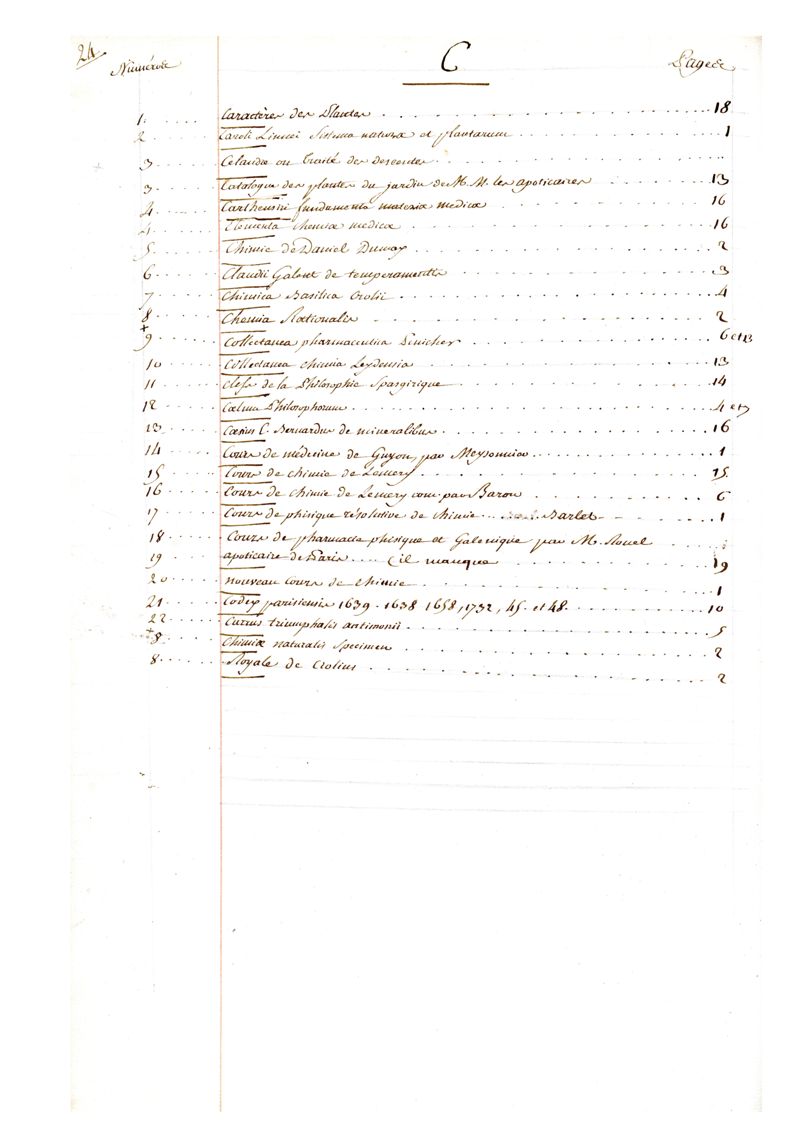 24
Numéros C Pages
1. Caractères des Plantes 18
2 Caroli Linnei Sistema naturæ et plantarum 1
3 Celandre ou traité des descentes
3. Catalogue des plantes du jardin de M.M. les apoticaires 13
4. Cartheusiri fundamenta materiæ medicæ 16
4. Elementa chemiæ medicæ 16
5. Chimie de Daniel 2
6. Claudii Galeni de temperamentis 3
7 Chimica Basilica Crolii 4
8 Chemia Rationalis 2
+
9 Collectanea pharmaceutica Penicher 6 et 13
10 Collectanea chimia Leydensia 13
11 Clefs de la Philosophie Spagirique 14
12 Cœlum Philosophorum 4 et 7
13 Cæsius C. Bernardus de mineralibus 16
14 Cours de médecine de Guyon, par Meysonnier 1
15 Cours de chimie de Lemery 15
16 Cours de chimie de Lemery com. par Baron 6
17 Cours de phisique résolutive de chimie Barlet 1
18 Cours de pharmacie phisique et Galenique par M. Rouel
19 apoticaire de Paris (il manque 19
20 nouveau Cours de Chimie 1
21 Codex parisiensis 1639. 1638 1658, 1732, 45. et 48. 10
22 Currus triumphalis antimonii 5
+8 Chimiæ naturalis Specimen 2
8. Royale de Crolius 2